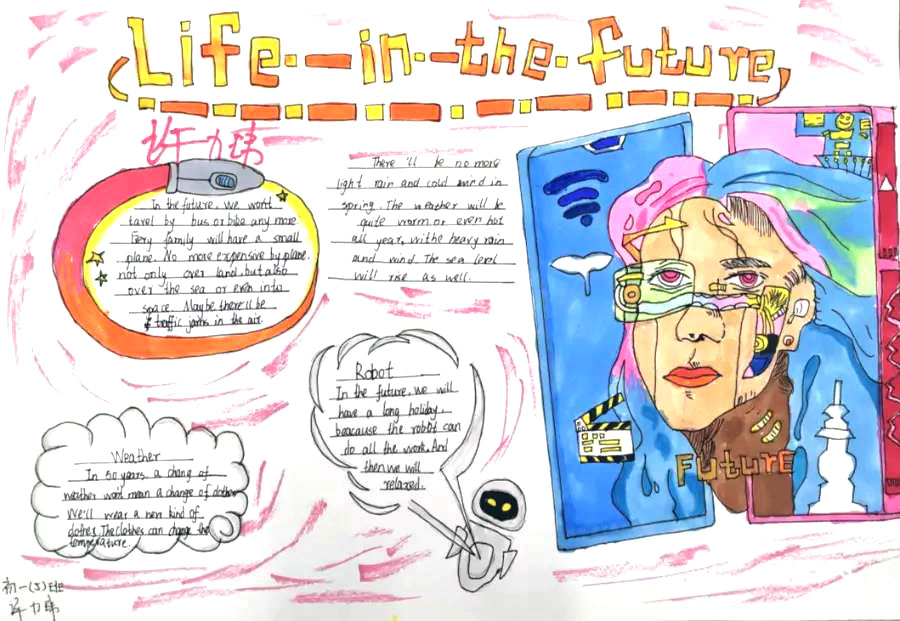 Life in the future
许力玮
In the future, we won't
tavel by bus or bike any more
Eery family will have a small
plane. No more expensive by plane.
not only over land, but also
over the sea or even into
space. Maybe there'll be
traffic jams in the air.
There'll be no more
light rain and cold wind in
spring. The weather will be
quite warm or even hot
all year, withe heavy rain
and wind. The sea level
will rise as well.
Robot
In the future, we will
have a long holiday,
beacause the robot can
do all the work. And
then we will
relaxed.
Weather
In 50 years, a chang of
weather wont mean a change of clothes
We'll wear a new kind of
clothes. The clothes can change the
temperature.
FuturE
初一(5)班
许力玮